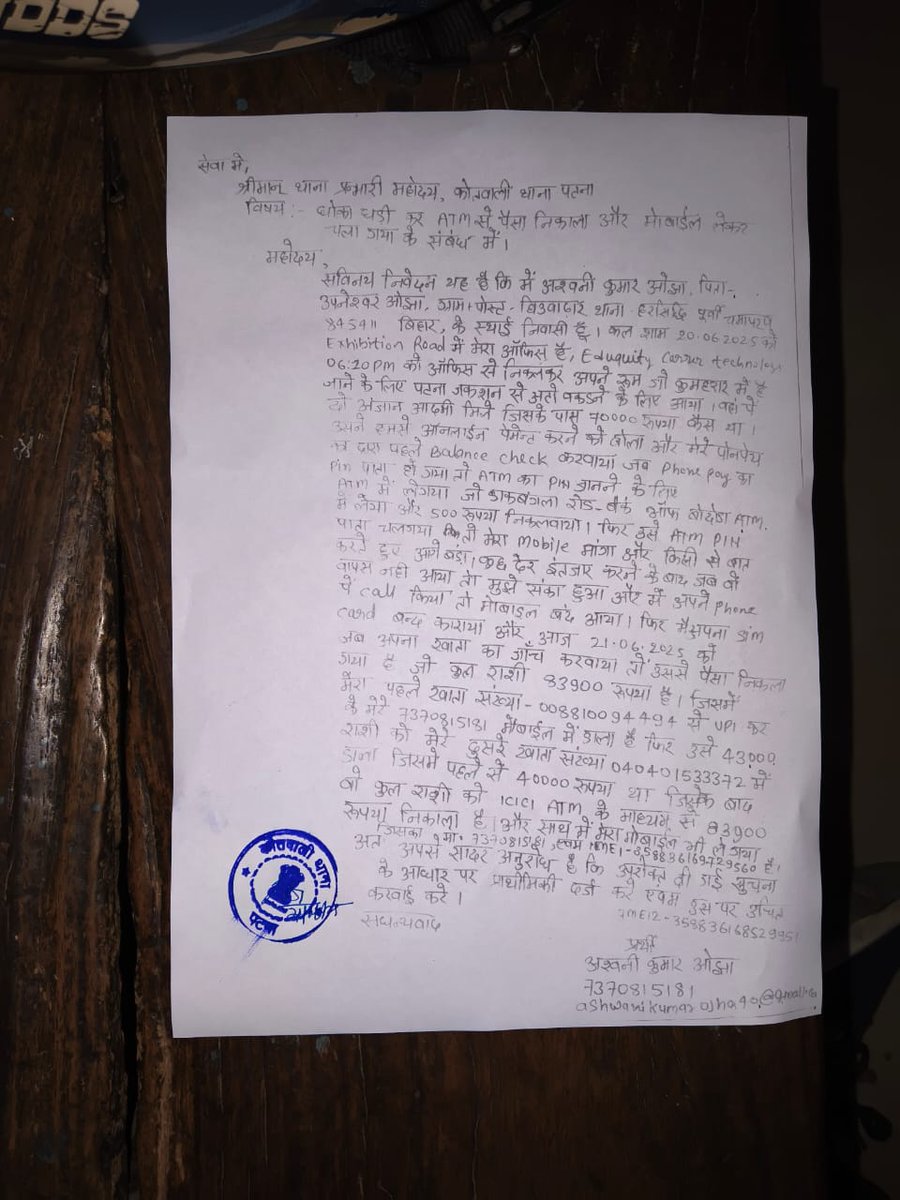 DDS
सेवा में,
श्रीमान् थाना प्रभारी महोदय, कोतवाली थाना पटना
विषय :- धोका धड़ी कर ATM से पैसा निकाला और मोबाईल लेकर
चला गया के संबंध में।
महोदय,
सविनय निवेदन यह है कि में अश्वनी कुमार ओझा, पिता-
उपनेश्वर ओझा, ग्राम+पोस्ट- थाना- हरसिद्धि पूर्वी चम्पारण
845411 बिहार, के स्थाई निवासी हूँ। कल शाम 20.06.2025 को
Exhibition Road में मेरा ऑफिस है, Eduquity Career technology
06:20 pm को ऑफिस से निकलकर अपने रूम जो कुमहरार में है
जाने के लिए पटना जंकशन से अटो पकडने के लिए आया। वहां पे
दो अंजान आदमी मिले जिसके पास 70000 रूपया कैस था।
उसने हमसे ऑनलाईन पेमेन्ट करने को बोला और मेरे फोनपेय
के द्वारा पहले Balance check करवाया जब Phone pay का
Pin पाता हो गया तो ATM का PIN जानने के लिए
ATM में लेगया जो डाकबंगला रोड- बैंक ऑफ बोरोडा ATM.
में लेगा और 500 रूपया निकलवाया। फिर उसे ATM PIN
पाता चलगया तो मेरा Mobile मांगा और किसी से बात
करते हुए आगे बड़ा। कुछ देर इंतजार करने के बाद जब वो
वापस नही आया तो मुझे संका हुआ और में अपने phone
पे call किया तो मोबाइल बंद आया। फिर मै अपना sim
card बन्द काराया और आज 21.06.2025 को
जब अपना खाता का जाँच करवाया तो उससे पैसा निकला
गया है जो कुल राशी 83900 रूपया है। जिसमें
मेरा पहले खाता संख्या - 008810094494 से UPI कर
के मेरे 7370815181 मोबाईल में डाला है फिर उसे 43900
राशी को मेरे दुसरे खाता संख्या 040401533372 में
डाला जिसमे पहले से 40000 रूपया था जिसके बाद
वो कुल राशी को ICICI ATM के माध्यम से 83900
रूपया निकाला है। और साथ में मेरा मोबाईल भी ले गया
जिसका मो. 7370815181 एवम IMEI- 358836169729560 है।
अतः अपसे सादर अनुरोध है कि उपरोक्त दी गई सुचना
के आधार पर प्राथीमिकी दर्ज करे एवम इस पर उचित
करवाई करे।
IMEI2- 358836168529951
सधन्यवाद
प्रार्थी
अश्वनी कुमार ओझा
7370815181
कोतवाली थाना
पटना